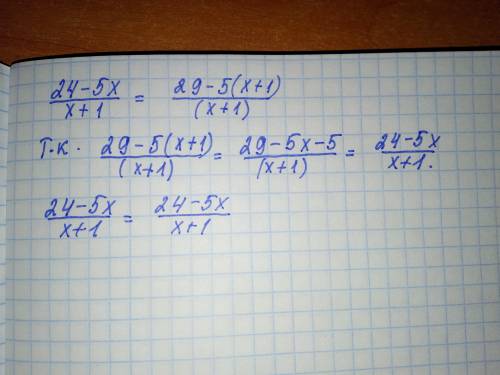 (24-5x)/(x+1) = (29-5(x+1))/((x+1))
Т.к. (29-5(x+1))/((x+1)) = (29-5x-5)/((x+1)) = (24-5x)/(x+1).
(24-5x)/(x+1) = (24-5x)/(x+1)